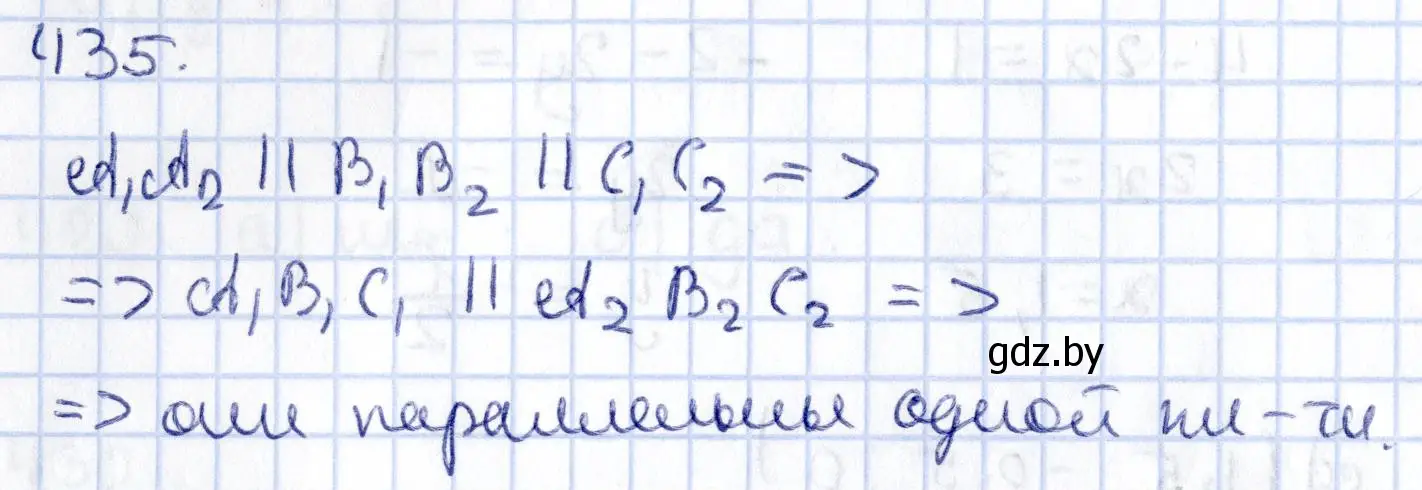 435.
A₁A₂ || B₁B₂ || C₁C₂ =>
=> A₁B₁C₁ || A₂B₂C₂ =>
gdz.by
=> они параллельны одной пл-ти.